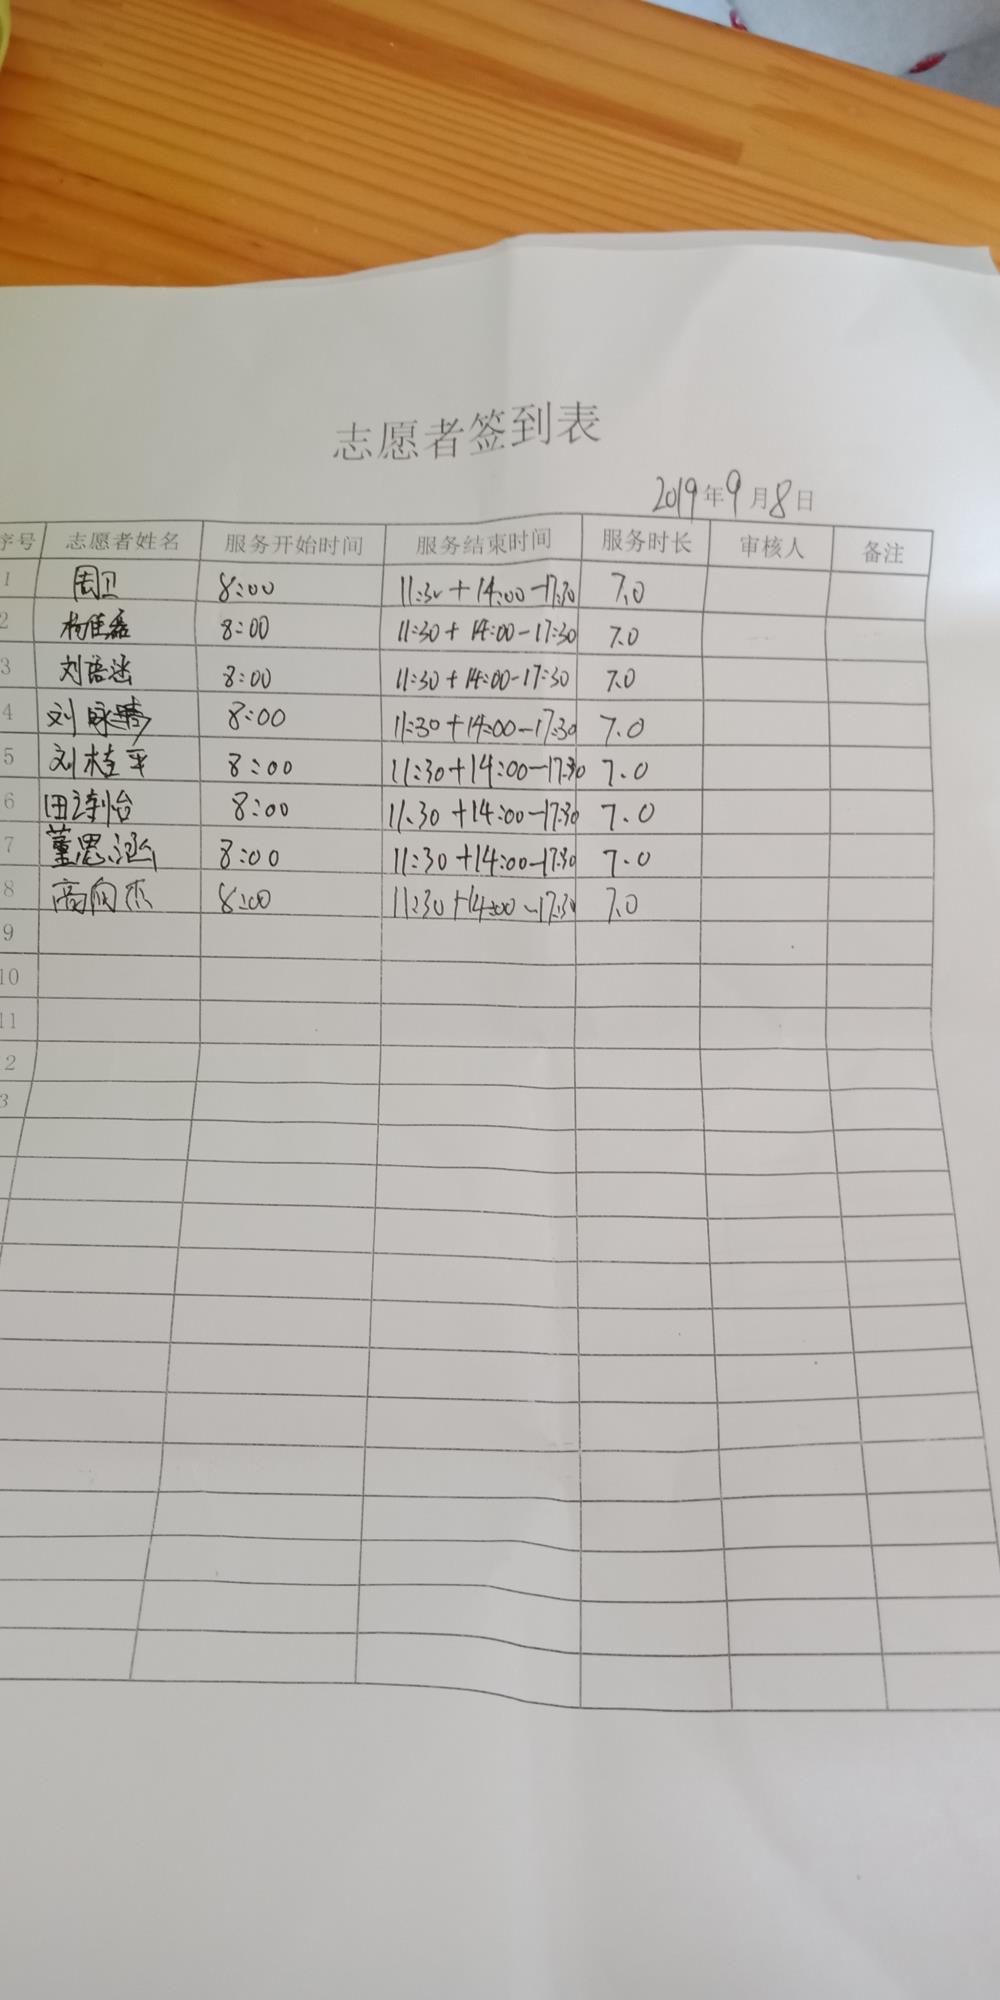 志愿者签到表
2019年9月8日
序号 志愿者姓名 服务开始时间 服务结束时间 服务时长 审核人 备注
1 周卫 8:00 11:30+14:00-17:30 7.0
2 杨佳磊 8:00 11:30+14:00-17:30 7.0
3 刘语涵 8:00 11:30+14:00-17:30 7.0
4 刘咏晴 8:00 11:30+14:00-17:30 7.0
5 刘桂平 8:00 11:30+14:00-17:30 7.0
6 田 8:00 11.30+14:00-17:30 7.0
7 董思涵 8:00 11:30+14:00-17:30 7.0
8 高向杰 8:00 11:30+14:00-17:30 7.0
9
10
11
2
3